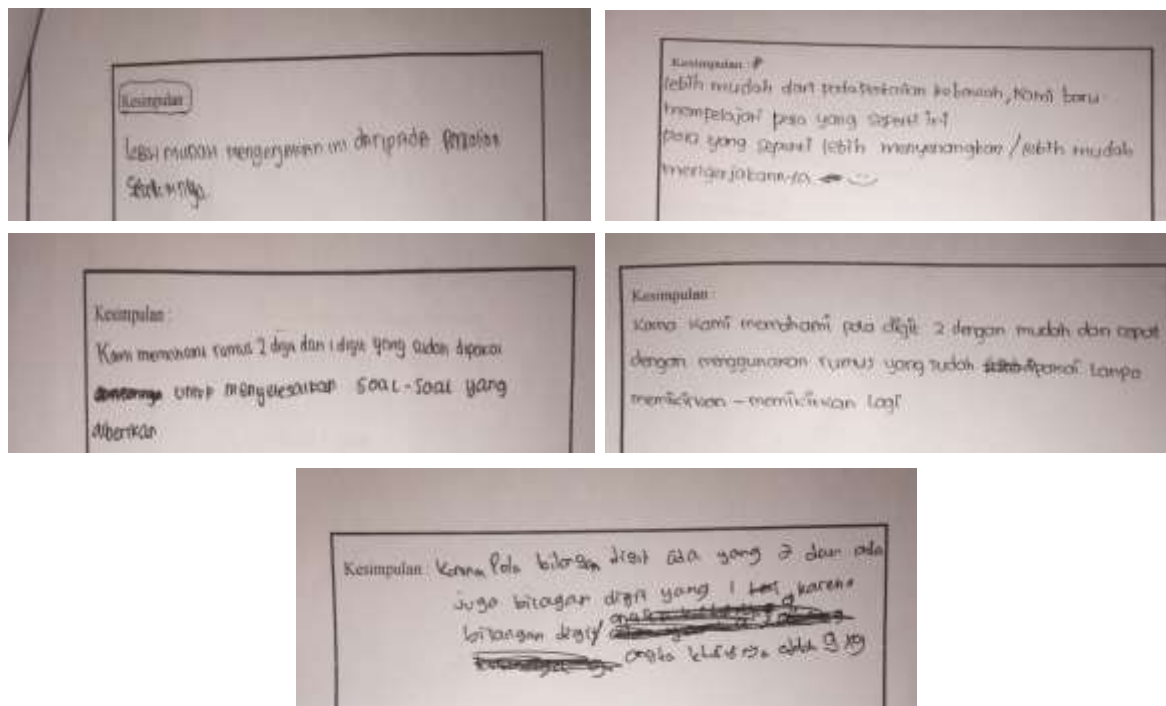 Kesimpulan
lebih mudah mengerjakan ini daripada perkalian
Kesimpulan :
lebih mudah dari pada perkalian kebawah, kami baru
mempelajari pola yang seperti ini
pola yang seperti lebih menyenangkan / lebih mudah
mengerjakannya
Kesimpulan :
Kami memahami rumus 2 digit dan 1 digit yang sudah dipakai
untuk menyelesaikan soal-soal yang
diberikan
Kesimpulan :
Karna kami memahami pola digit 2 dengan mudah dan cepat
dengan menggunakan rumus yang sudah dipakai tanpa
memikirkan - memikirkan lagi
Kesimpulan : Karna Pola bilangan digit ada yang 2 dan ada
juga bilagan digit yang 1 karena
bilangan digit
angka khususnya adalah 9